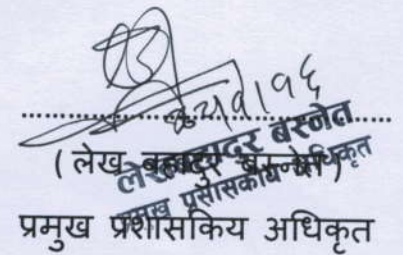 (लेख बहादुर बस्नेत)
लेख बहादुर बस्नेत
प्रमुख प्रशासकीय अधिकृत
प्रमुख प्रशासकिय अधिकृत